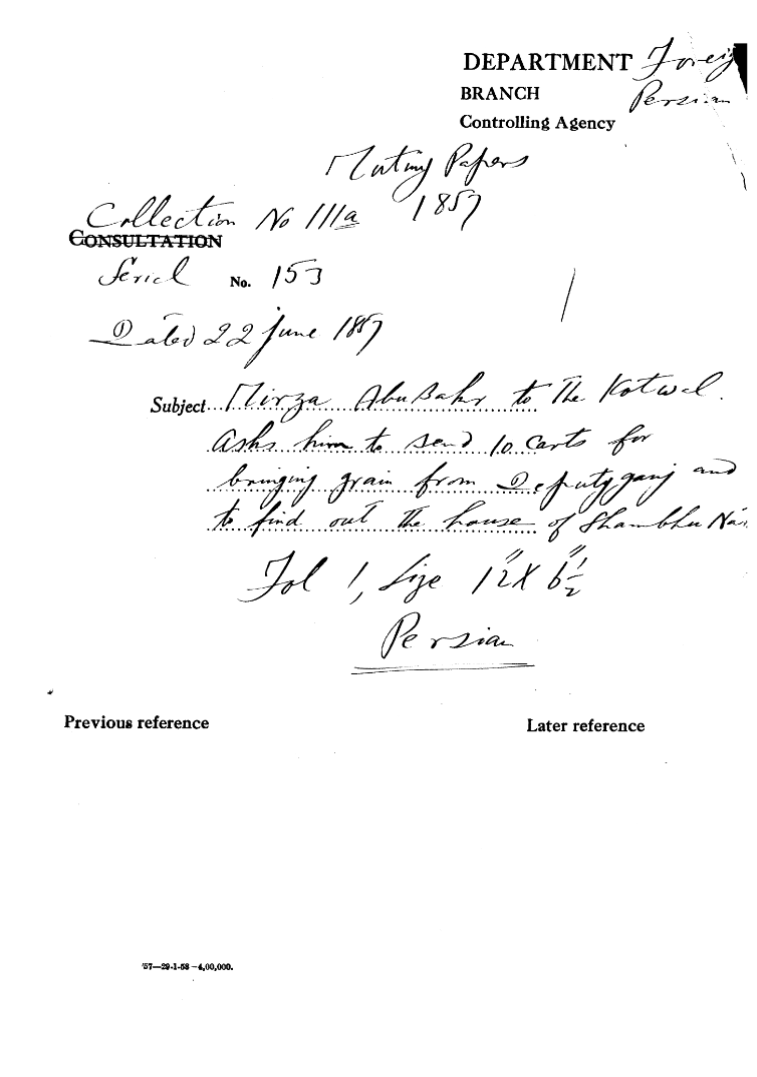 DEPARTMENT Foreig
BRANCH Persian
Controlling Agency
Mutiny Papers
1857
Collection No IIIa
CONSULTATION
Serial No. 153
Dated 22 June 1857
Subject Mirza Abu Bakr to the Kotwal.
Asks him to send 10 carts for
bringing grain from Deputyganj and
to find out the house of Shambhu Na
Fol 1, Size 12" X 6½"
Persian
Previous reference
Later reference
57—29-1-58—4,00,000.